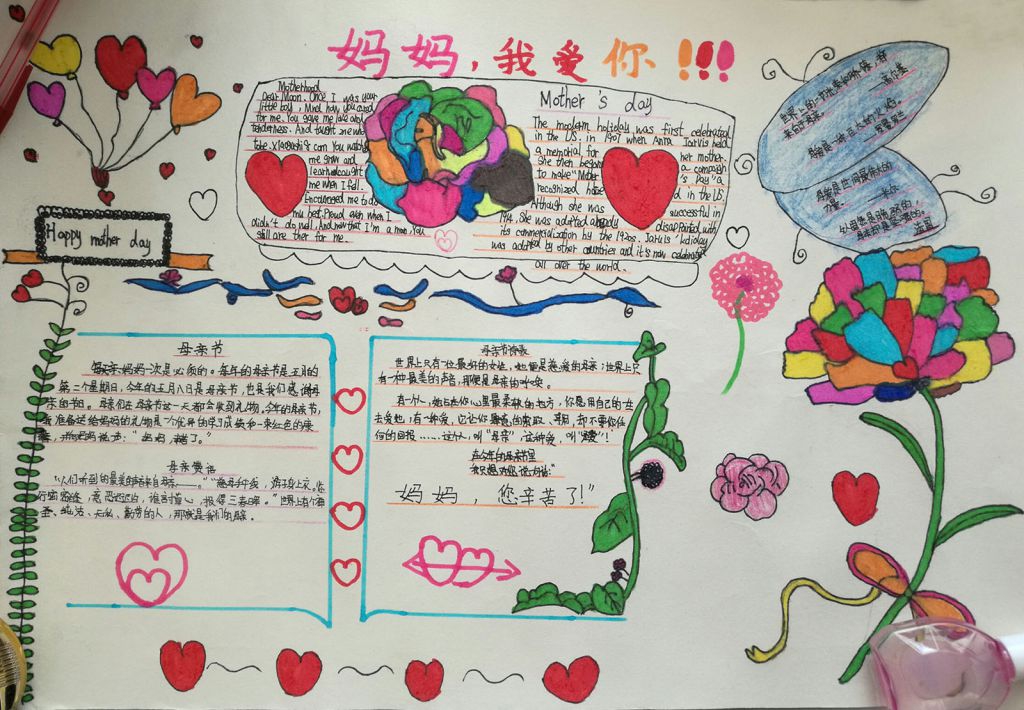 妈妈,我爱你!!!
Motherhood
Dear Moon. Once I was your
little boy, And how you cared
for me. You gave me love and
tenderness. And taught me who
to be. You watched
me grow and
learn and caught
me when I fell.
Encouraged me to do
my best. Proud even when I
didn't do well. And now that I'm a man, You
still are there for me.
Mother's day
The modern holiday was first celebrated
in the US. in 1907 when Anna Jarvis held
a memorial for her mother.
She then began a campaign
to make "Mother 's Day" a
recognized in the US.
Although she was successful in
1914. She was disappointed with
its commercialization by the 1920s. Jarvis' holiday
was adopted by other countries and it's now celebrated
all over the world.
Happy mother day
母亲节
每年的母亲节是五月的
第二个星期日,今年的五月八日是母亲节,也是我们感谢母
亲的节日。母亲们在母亲节这一天都会收到礼物,今年的母亲节,
我准备送给妈妈的礼物是个优异的学习成绩和一朵红色的康
"妈妈,辛苦了。"
母亲赞语
"人们听到的最美的声音来自母亲——。""慈母手中线,游子身上衣。临
行密密缝,意恐迟迟归,谁言寸草心,报得三春晖。"世界上有个最
圣、纯洁、无私、勤劳的人,那就是我们的母亲。
母亲节诗歌
世界上只有一位最好的女性,她便是慈爱的母亲;世界上只
有一种最美的声音,那便是母亲的呼唤。
有一个人,她占去你心里最柔软的地方,你愿用自己的一生
去爱她;有一种爱,它让你肆意的索取、享用,却不要你任
何的回报……这个人,叫"母亲",这种爱,叫"母爱"!
在今年的母亲节里
我只想对您说句话:"
妈妈,您辛苦了!"